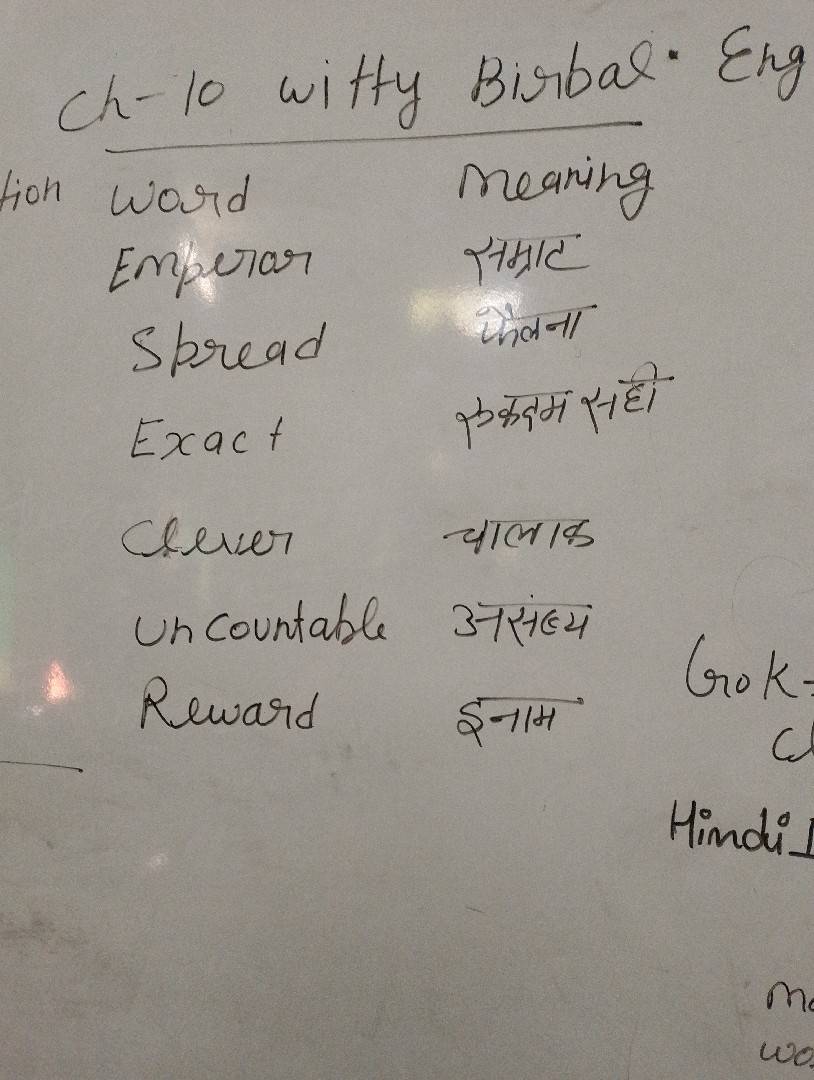 Ch-10 witty Birbal. Eng
tion word meaning
Emperor सम्राट
Spread फैलना
Exact एकदम सही
Clever चालाक
Uncountable असंख्य
Reward इनाम
GoK-
Cl
Hindi I
wo